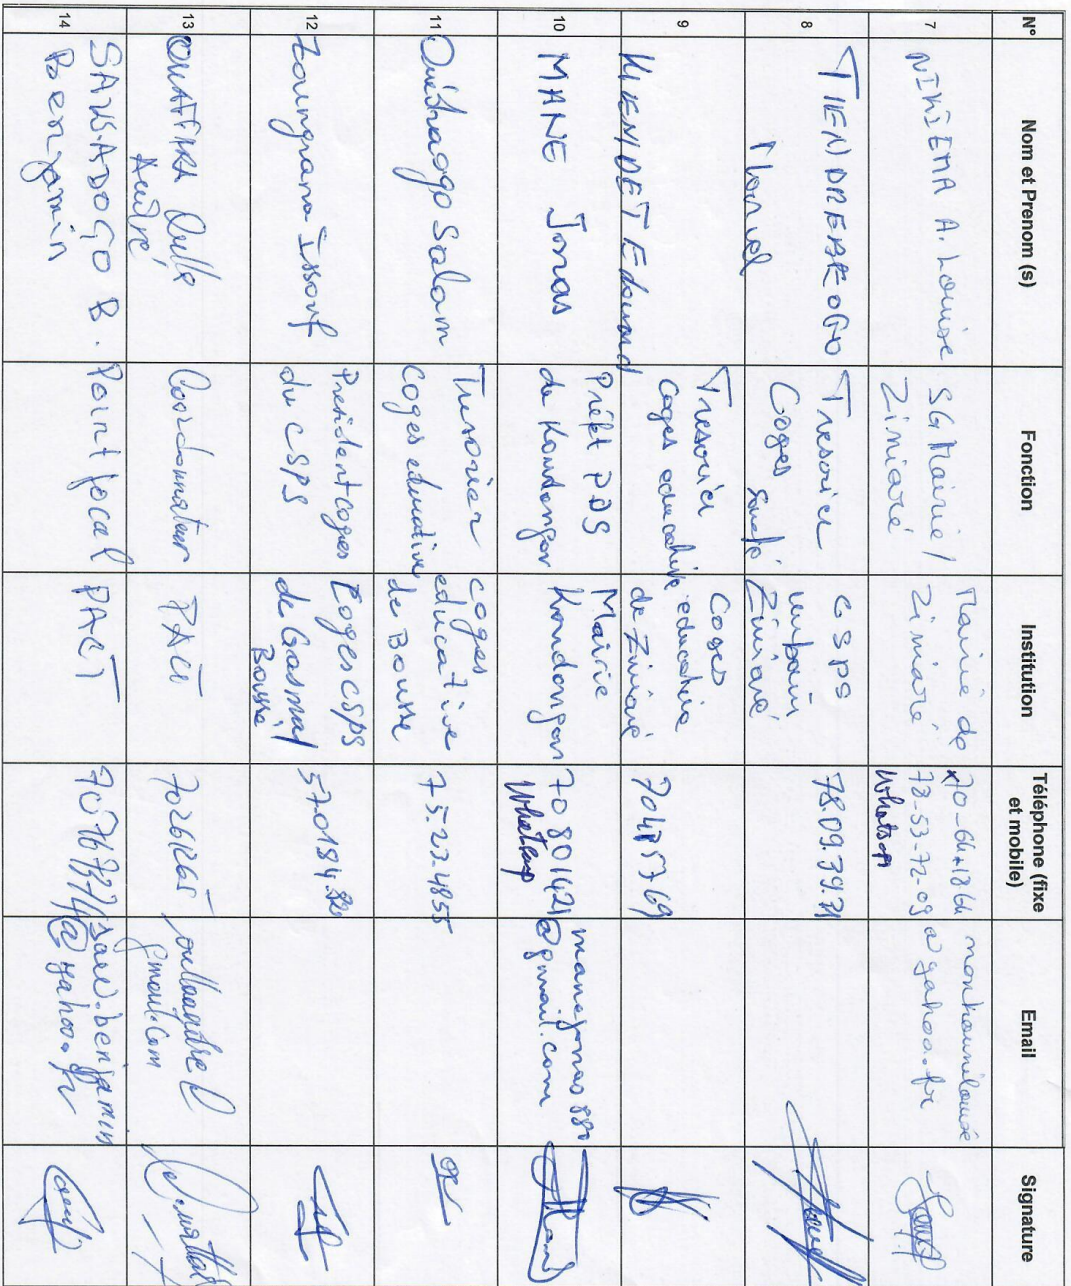 N°
Nom et Prenom (s)
Fonction
Institution
Téléphone (fixe
et mobile)
Email
Signature
7
NIKIEMA A. Louise
SG Mairie/
Ziniaré
Mairie de
Ziniaré
78-53-72-09
Whatsap
@yahoo.fr
8
TIENDREBEOGO
Tresorier
Coges santé
CSPS
urbain
Ziniaré
78.09.39.71
9
KIENDET Edouard
Tresorier
Coges educative
Coges
educative
de Ziniaré
70485769
10
MANE Jonas
Préfet PDS
Mairie
70801421
Whatsap
manejonas880
@gmail.com
11
Ouédraogo Salam
Tresorier
Coges educative
coges
educative
de Bousse
75.22.48.55
12
Zoungrana Issouf
President coges
du CSPS
Coges CSPS
de
Bousse
13
OUATTARA
André
Coordonnateur
PACT
70261265
gmail.com
14
SAWADOGO B.
Benjamin
Point focal
PACT
saw.benjamin
@yahoo.fr